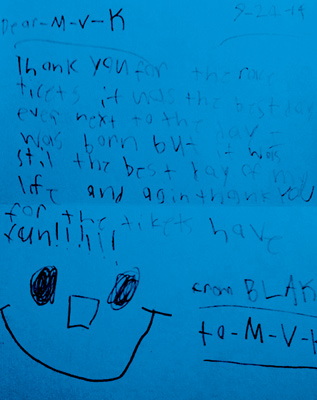 Dear-M-V-K
Thank you for the race
tickets it was the best day
ever next to the day I
was born but it was
stil the best day of my
life and agin thank you
for the tikets have
fun!!!!!!
from BLAK
to-M-V-K